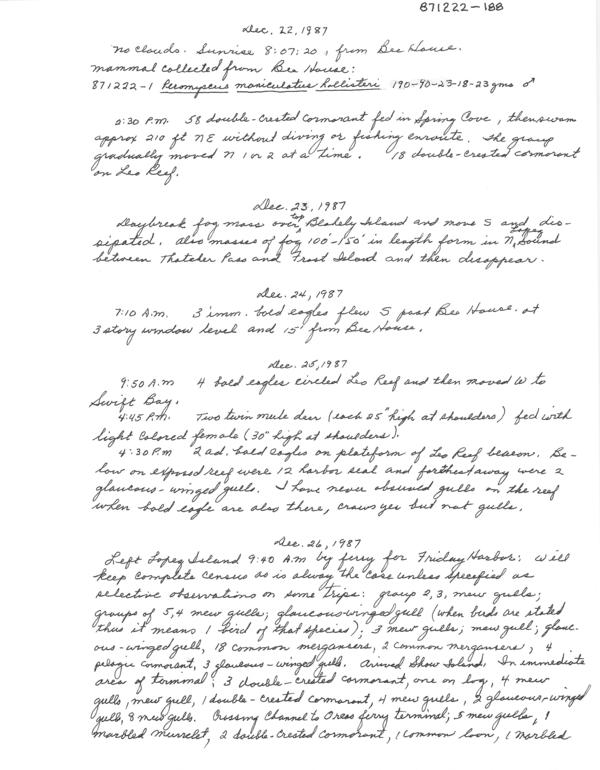 871222-188
Dec. 22, 1987
No clouds. Sunrise 8:07:20, from Bee House.
mammal collected from Bee House:
871222-1 Peromyscus maniculatus hollisteri 190-90-23-18-23gms ♂
2:30 P.M. 58 double-crested cormorant fed in Spring Cove, then swam
approx 210 ft NE without diving or fishing enroute. The group
gradually moved N 1 or 2 at a time. 18 double-crested cormorant
on Leo Reef.
Dec. 23, 1987
Daybreak fog mass over top Blakely Island and move S and dis-
sipated. Also masses of fog 100'-150' in length form in N. Lopez Sound
between Thatcher Pass and Frost Island and then disappear.
Dec. 24, 1987
7:10 A.M. 3 imm. bald eagles flew S past Bee House at
3 story window level and 15' from Bee House.
Dec. 25, 1987
9:50 A.M 4 bald eagles circled Leo Reef and then moved W to
Swift Bay.
4:45 P.M. Two twin mule deer (each 25" high at shoulders) fed with
light colored female (30" high at shoulders).
4:30 P.M 2 ad. bald eagles on plateform of Leo Reef beacon. Be-
low on exposed reef were 12 harbor seal and farthest away were 2
glaucous-winged gulls. I have never observed gulls on the reef
when bald eagle are also there, crows yes but not gulls.
Dec. 26, 1987
Left Lopez Island 9:40 A.M by ferry for Friday Harbor: Will
keep complete census as is alway the case unless specified as
selective observations on some trips: group 2, 3, mew gulls;
groups of 5, 4 mew gulls; glaucous-winged gull (when birds are stated
thus it means 1 bird of that species); 3 mew gulls; mew gull; glauc-
ous-winged gull, 18 common mergansers, 2 common mergansers, 4
pelagic cormorant, 3 glaucous-winged gulls. Arrived Shaw Island. In immediate
area of terminal: 3 double-crested cormorant, one on log, 4 mew
gulls, mew gull, 1 double-crested cormorant, 4 mew gulls, 2 glaucous-winged
gull, 8 mew gulls. Crossing Channel to Orcas ferry terminal; 5 mew gulls, 1
marbled murrelet, 2 double-crested cormorant, 1 common loon, 1 marbled